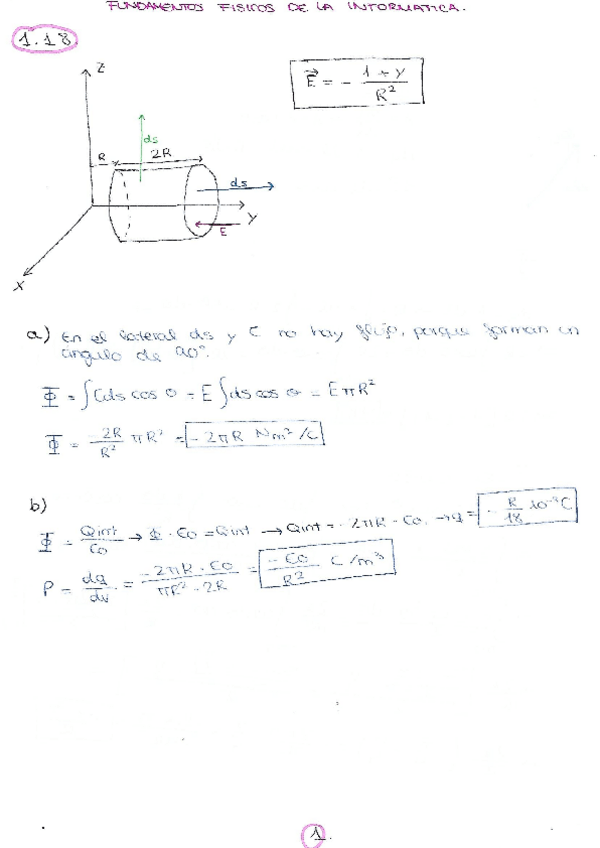 FUNDAMENTOS FISICOS DE LA INFORMATICA.
1.18
Z
E⃗ = - (1 + y) / R²
ds
R
2R
ds
Y
E
X
a) En el lateral ds y E no hay flujo, porque forman un
ángulo de 90°.
Φ = ∫Eds cos θ = E ∫ds cos θ = EπR²
Φ = (-2R / R²) πR² = -2πR Nm²/C
b)
Φ = Qint / ε0 → Φ · ε0 = Qint → Qint = -2πR · ε0. → q = -(R / 18) 10⁻⁹C
ρ = dq / dv = (-2πR · ε0) / (πR² · 2R) = -ε0 / R² C/m³
1.